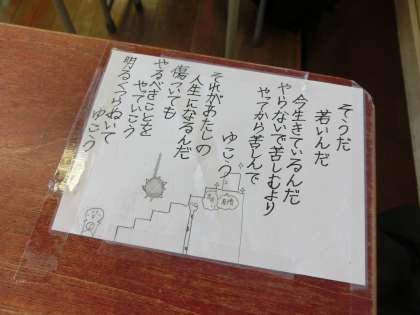 そうだ
若いんだ
今生きているんだ
やらないで苦しむより
やってから苦しんで
ゆこう
それがあたしの
人生になるんだ
傷ついても
やるべきことを
やっていこう
明るくつらぬいて
ゆこう